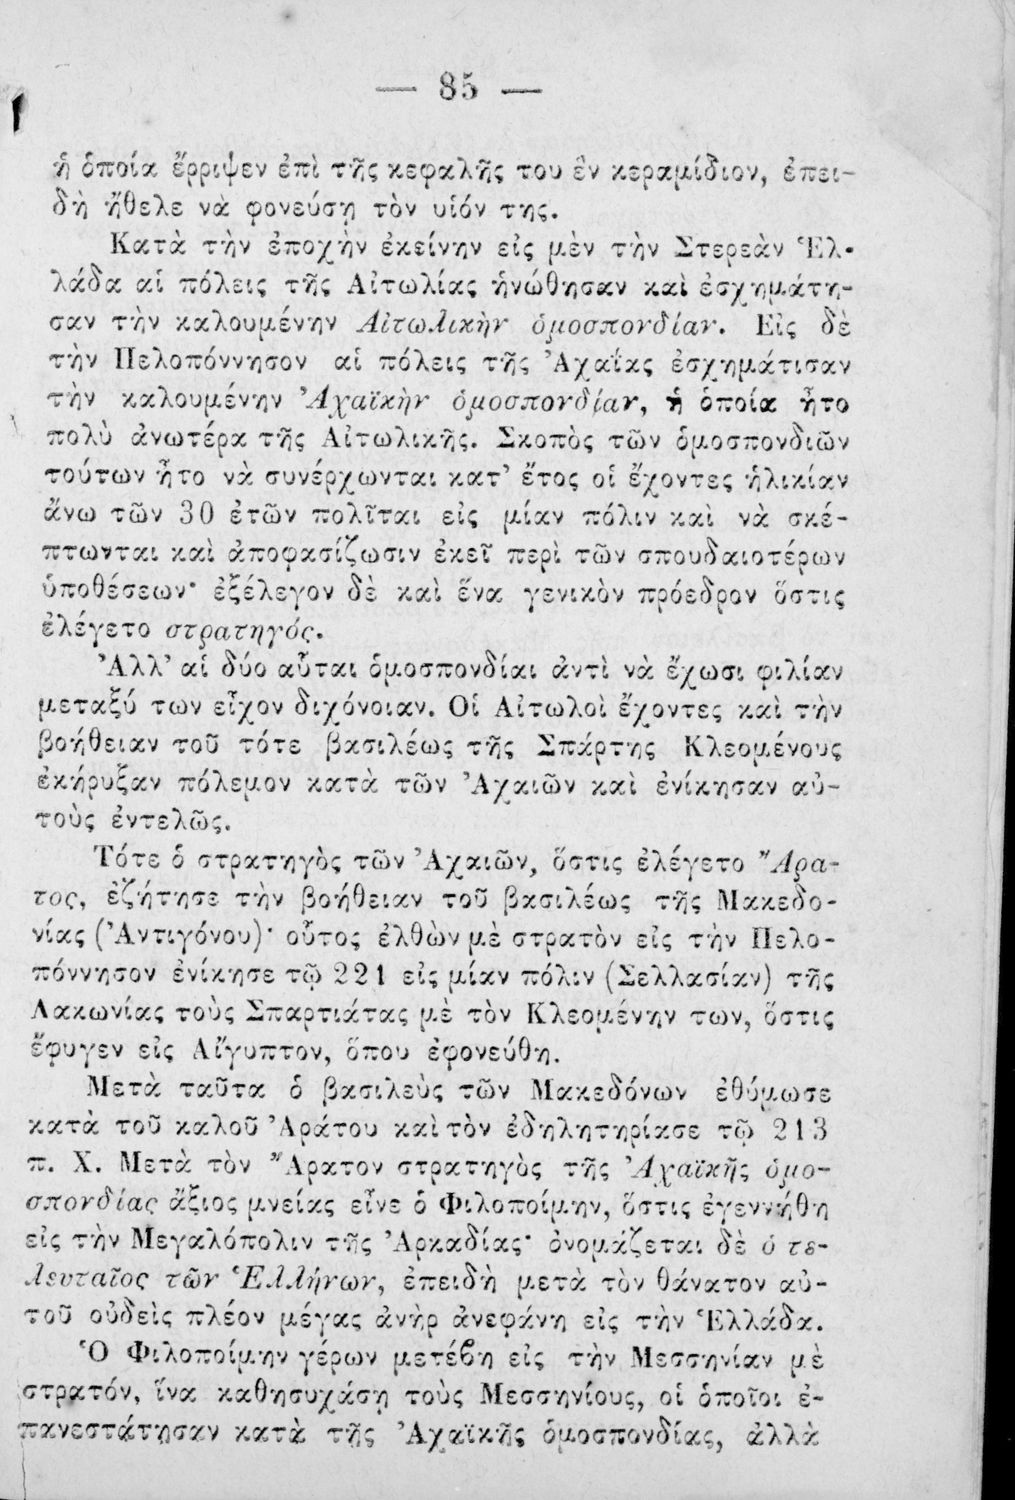 — 85 —
ἡ ὁποία ἔρριψεν ἐπὶ τῆς κεφαλῆς του ἓν κεραμίδιον, ἐπει-
δὴ ἤθελε νὰ φονεύσῃ τὸν υἱόν της.
Κατὰ τὴν ἐποχὴν ἐκείνην εἰς μὲν τὴν Στερεὰν Ἑλ-
λάδα αἱ πόλεις τῆς Αἰτωλίας ἡνώθησαν καὶ ἐσχημάτη-
σαν τὴν καλουμένην Αἰτωλικὴν ὁμοσπονδίαν. Εἰς δὲ
τὴν Πελοπόννησον αἱ πόλεις τῆς Ἀχαΐας ἐσχημάτισαν
τὴν καλουμένην Ἀχαϊκὴν ὁμοσπονδίαν, ἡ ὁποία ἦτο
πολὺ ἀνωτέρα τῆς Αἰτωλικῆς. Σκοπὸς τῶν ὁμοσπονδιῶν
τούτων ἦτο νὰ συνέρχωνται κατ’ ἔτος οἱ ἔχοντες ἡλικίαν
ἄνω τῶν 30 ἐτῶν πολῖται εἰς μίαν πόλιν καὶ νὰ σκέ-
πτωνται καὶ ἀποφασίζωσιν ἐκεῖ περὶ τῶν σπουδαιοτέρων
ὑποθέσεων· ἐξέλεγον δὲ καὶ ἕνα γενικὸν πρόεδρον ὅστις
ἐλέγετο στρατηγός.
Ἀλλ’ αἱ δύο αὗται ὁμοσπονδίαι ἀντὶ νὰ ἔχωσι φιλίαν
μεταξύ των εἶχον διχόνοιαν. Οἱ Αἰτωλοὶ ἔχοντες καὶ τὴν
βοήθειαν τοῦ τότε βασιλέως τῆς Σπάρτης Κλεομένους
ἐκήρυξαν πόλεμον κατὰ τῶν Ἀχαιῶν καὶ ἐνίκησαν αὐ-
τοὺς ἐντελῶς.
Τότε ὁ στρατηγὸς τῶν Ἀχαιῶν, ὅστις ἐλέγετο Ἄρα-
τος, ἐζήτησε τὴν βοήθειαν τοῦ βασιλέως τῆς Μακεδο-
νίας (Ἀντιγόνου)· οὗτος ἐλθὼν μὲ στρατὸν εἰς τὴν Πελο-
πόννησον ἐνίκησε τῷ 221 εἰς μίαν πόλιν (Σελλασίαν) τῆς
Λακωνίας τοὺς Σπαρτιάτας μὲ τὸν Κλεομένην των, ὅστις
ἔφυγεν εἰς Αἴγυπτον, ὅπου ἐφονεύθη.
Μετὰ ταῦτα ὁ βασιλεὺς τῶν Μακεδόνων ἐθύμωσε
κατὰ τοῦ καλοῦ Ἀράτου καὶ τὸν ἐδηλητηρίασε τῷ 213
π. Χ. Μετὰ τὸν Ἄρατον στρατηγὸς τῆς Ἀχαϊκῆς ὁμο-
σπονδίας ἄξιος μνείας εἶνε ὁ Φιλοποίμην, ὅστις ἐγεννήθη
εἰς τὴν Μεγαλόπολιν τῆς Ἀρκαδίας· ὀνομάζεται δὲ ὁ τε-
λευταῖος τῶν Ἑλλήνων, ἐπειδὴ μετὰ τὸν θάνατον αὐ-
τοῦ οὐδεὶς πλέον μέγας ἀνὴρ ἀνεφάνη εἰς τὴν Ἑλλάδα.
Ὁ Φιλοποίμην γέρων μετέϐη εἰς τὴν Μεσσηνίαν μὲ
στρατόν, ἵνα καθησυχάσῃ τοὺς Μεσσηνίους, οἱ ὁποῖοι ἐ-
πανεστάτησαν κατὰ τῆς Ἀχαϊκῆς ὁμοσπονδίας, ἀλλὰ